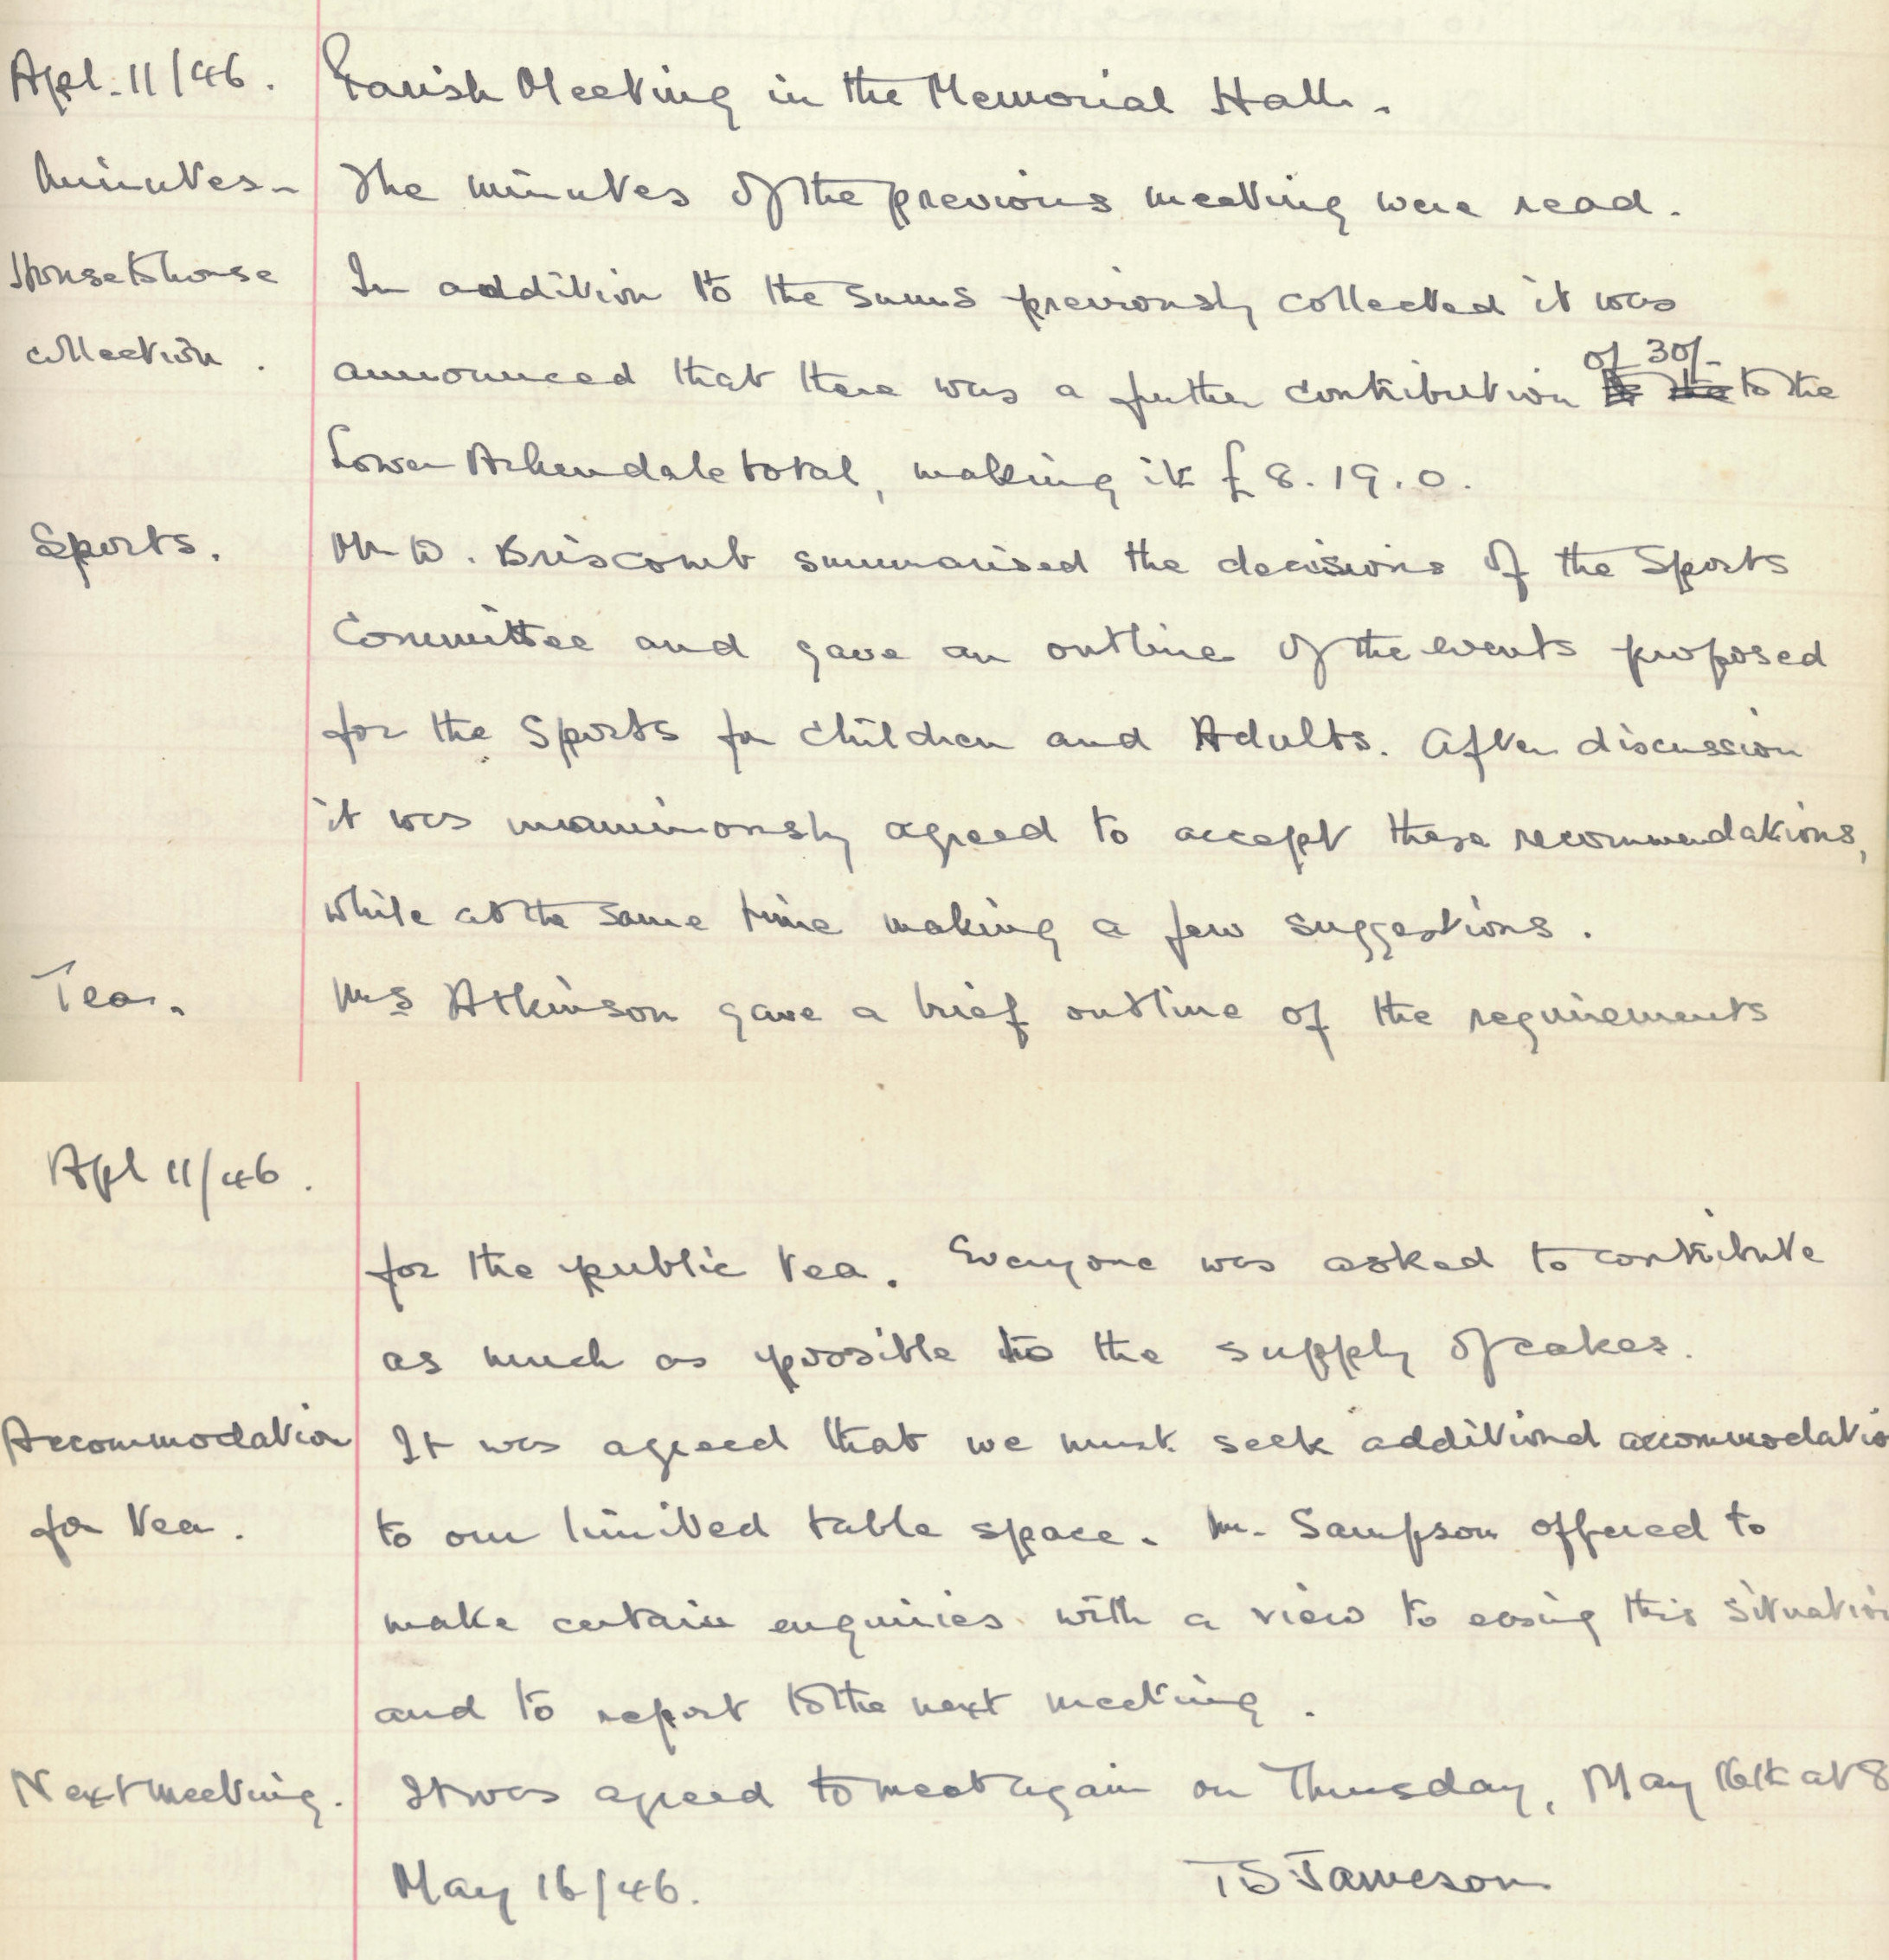 Apl. 11/46. Parish Meeting in the Memorial Hall.
Minutes- The minutes of the previous meeting were read.
House to house In addition to the sums previously collected it was
collection. announced that there was a further contribution of 30/- to the
Lower Arkendale total, making it £8.19.0.
Sports. Mr D. Briscomb summarised the decisions of the Sports
Committee and gave an outline of the events proposed
for the Sports for Children and Adults. After discussion
it was unanimously agreed to accept these recommendations,
while at the same time making a few suggestions.
Tea. Mrs Atkinson gave a brief outline of the requirements
Apl 11/46.
for the public tea. Everyone was asked to contribute
as much as possible to the supply of cakes.
Accommodation It was agreed that we must seek additional accommodatio
for tea. to our limited table space. Mr. Sampson offered to
make certain enquiries with a view to easing this situation
and to report to the next meeting.
Next meeting. It was agreed to meet again on Thursday, May 16th at 8
May 16/46. TS Jameson